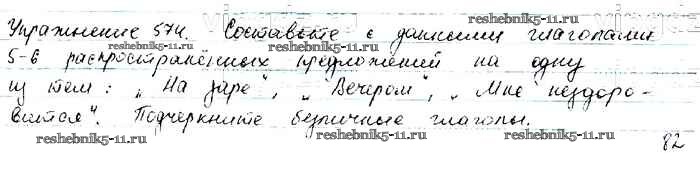 Упражнение 574. Составьте с данными глаголами
5-6 распространённых предложений на одну
из тем: „На заре", „Вечером", „Мне нездоро-
вится". Подчеркните безличные глаголы.
82
reshebnik5-11.ru
reshebnik5-11.ru
reshebnik5-11.ru
reshebnik5-11.ru
reshebnik5-11.ru